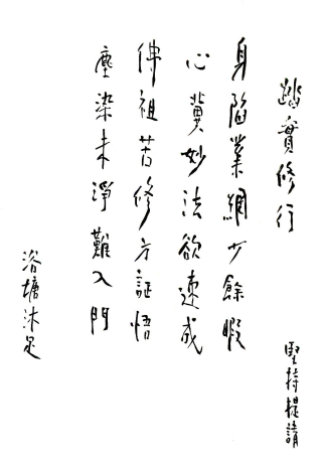 踏實修行
堅持提請
身陷業網少餘暇
心冀妙法欲速成
佛祖苦修方証悟
塵染未淨難入門
浴塘沐足